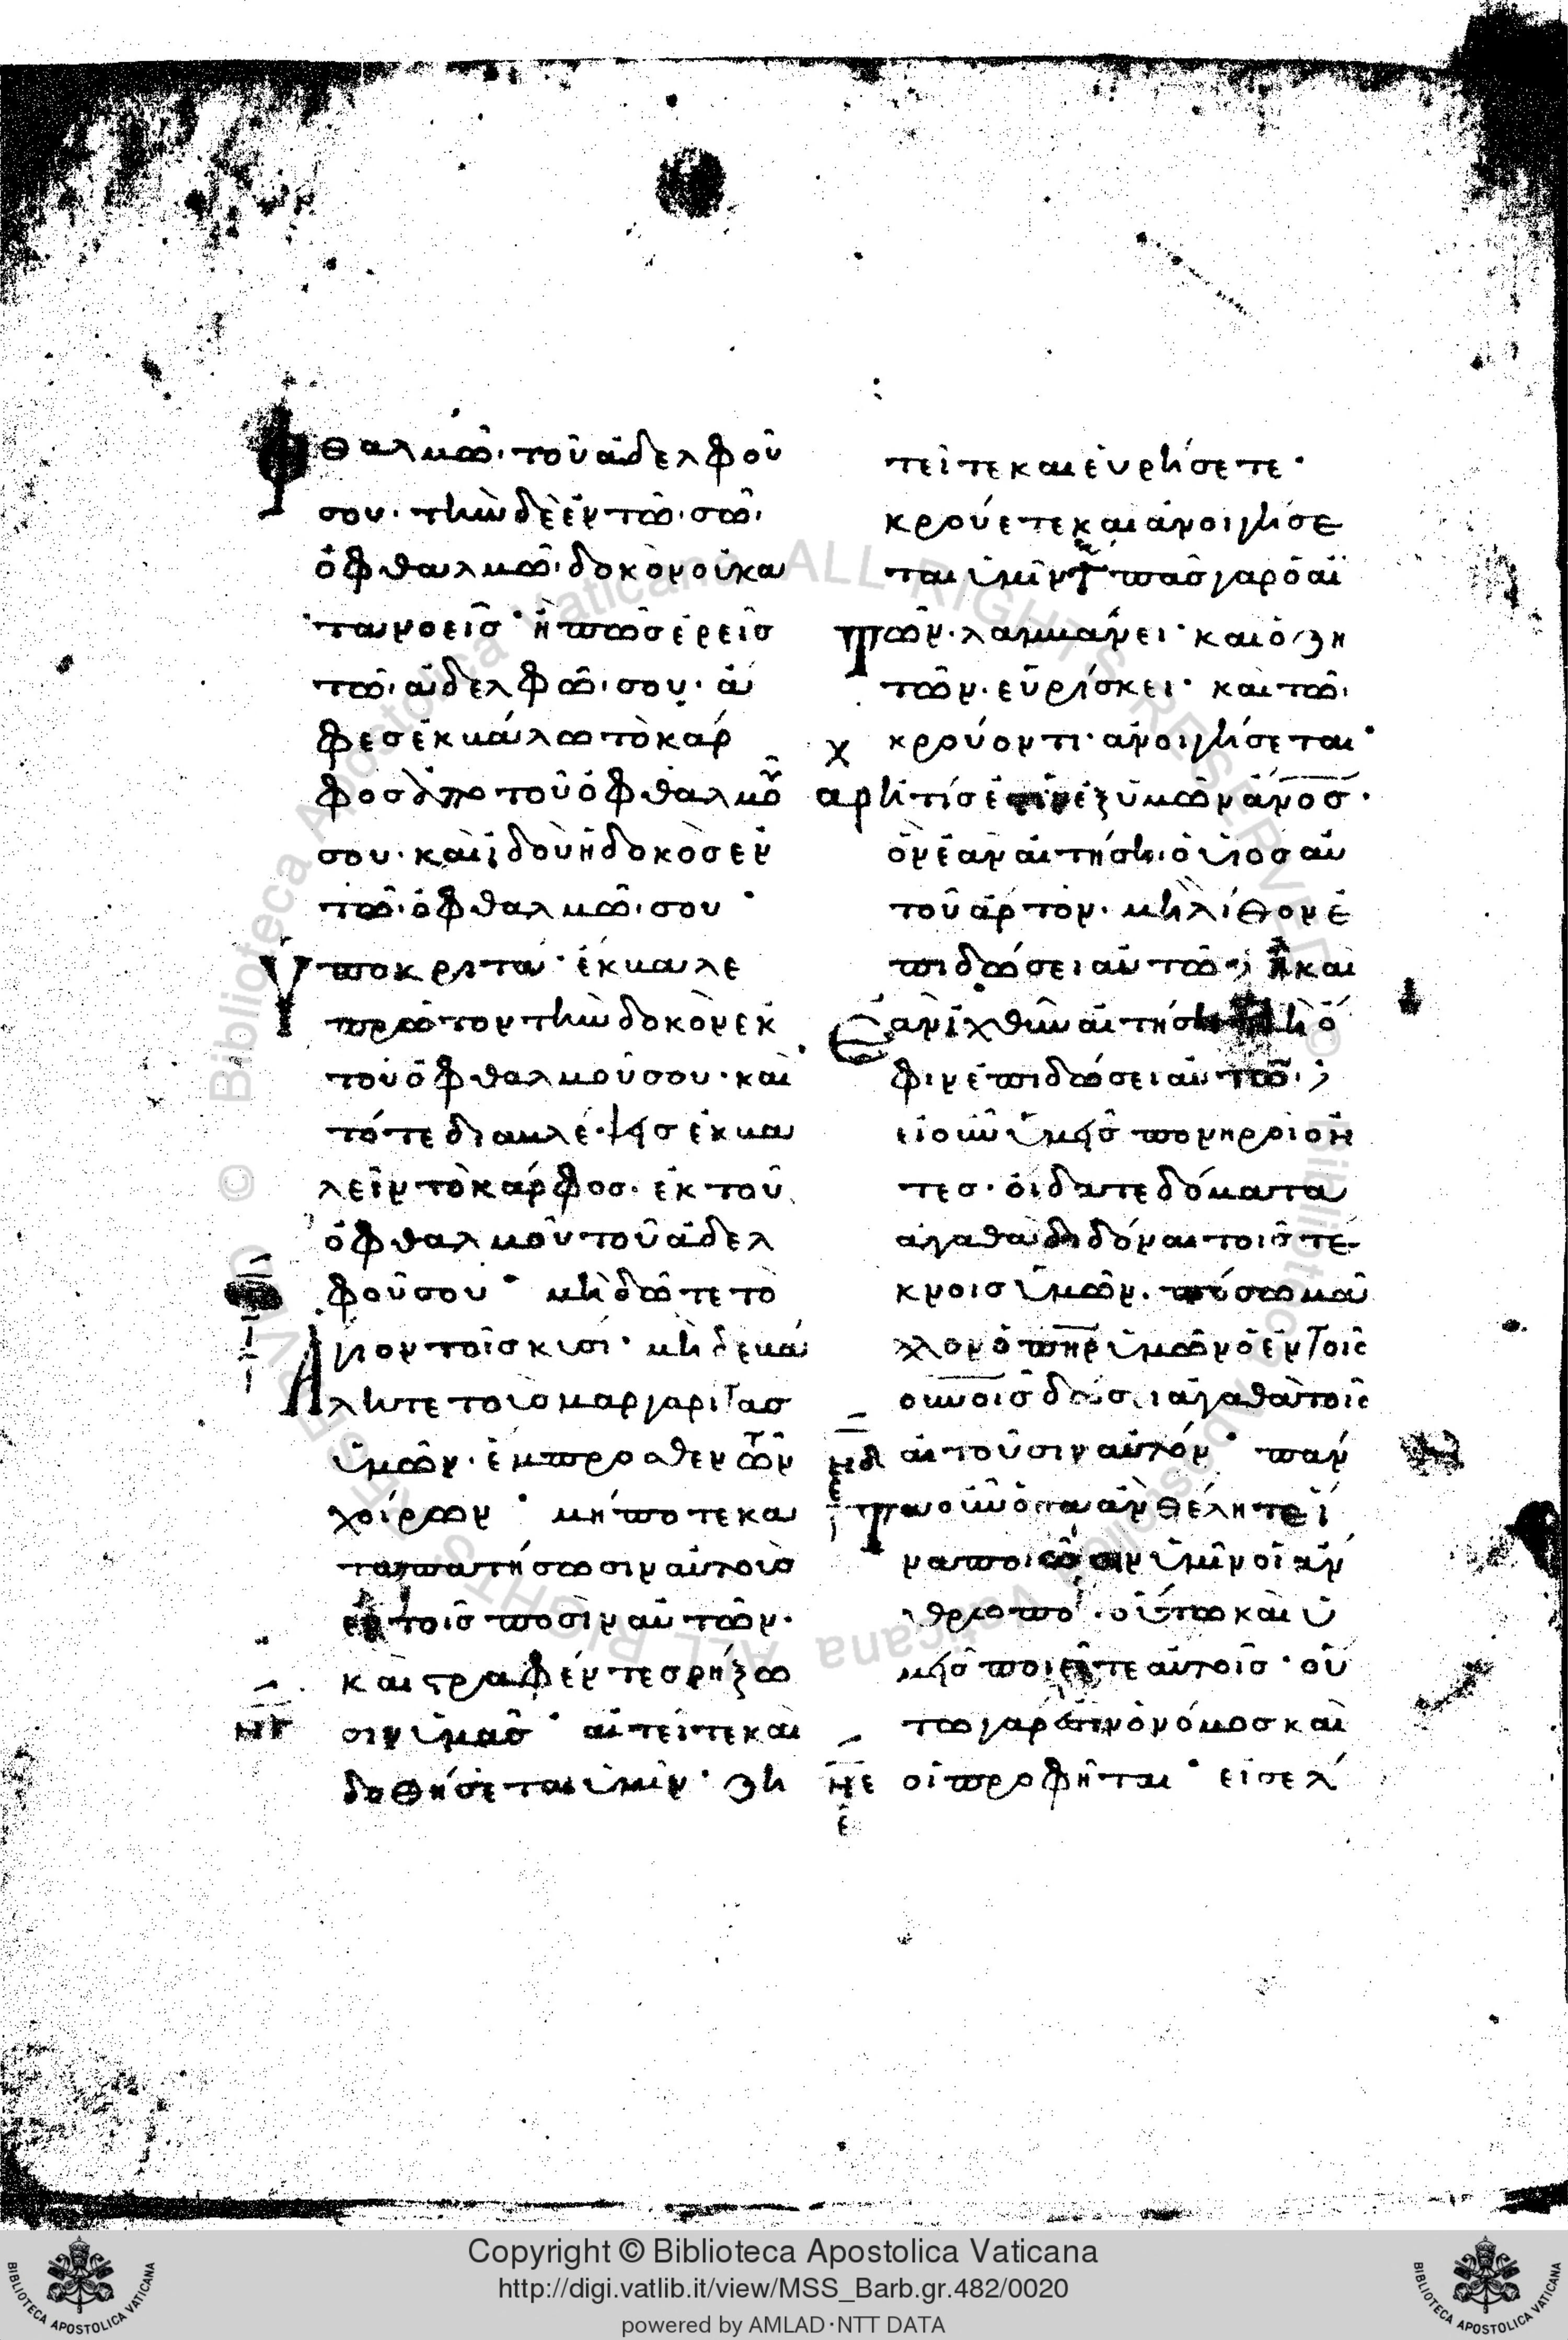 φθαλμῶ· τοῦ ἀδελφοῦ
σου· τὴν δὲ ἐν τῶ σῶ
ὀφθαλμῶ δοκὸν οὐ κα
τανοεῖς· ἢ πῶς ἐρεῖς
τῶ ἀδελφῶ σου· ἄ
φες ἐκβάλω τὸ κάρ
φος ἀπὸ τοῦ ὀφθαλμοῦ
σου· καὶ ἰδοὺ ἡ δοκὸς ἐν
τῶ ὀφθαλμῶ σου·
Ὑποκριτά· ἔκβαλε
πρῶτον τὴν δοκὸν ἐκ
τοῦ ὀφθαλμοῦ σου· καὶ
τότε διαβλέψης ἐκβα
λεῖν τὸ κάρφος· ἐκ τοῦ
ὀφθαλμοῦ τοῦ ἀδελ
φοῦ σου· μὴ δῶτε τὸ
ἅγιον τοῖς κυσί· μὴ δὲ βά
λητε τοὺς μαργαρίτας
ὑμῶν· ἔμπροσθεν τῶν
χοίρων· μήποτε κα
ταπατήσωσιν αὐτοὺς
ἐν τοῖς ποσὶν αὐτῶν·
καὶ στραφέντες ρήξω
σιν ὑμᾶς· αἰτεῖτε καὶ
δοθήσεται ὑμῖν· ζη
τεῖτε καὶ εὑρήσετε·
κρούετε καὶ ἀνοιγήσε
ται ὑμῖν πᾶς γὰρ ὁ αἰ
τῶν· λαμβάνει· καὶ ὁ ζη
τῶν· εὑρίσκει· καὶ τῶ
κρούοντι· ἀνοιγήσεται·
χ
αρ ἢ τίς ἐστιν ἐξ ὑμῶν ἄνος·
ὃν ἐὰν αἰτήση ὁ υἱὸς αὐ
τοῦ ἄρτον· μὴ λίθον ἐ
πιδώσει αὐτῶ; ἢ καὶ
Ἐὰν ἰχθὺν αἰτήση μὴ ὄ
φιν ἐπιδώσει αὐτῶ;
εἰ οὖν ὑμεῖς πονηροὶ ὄν
τες· οἴδατε δόματα
ἀγαθὰ διδόναι τοῖς τέ
κνοις ὑμῶν· πόσω μᾶ
λλον ὁ πηρ ὑμῶν ὁ ἐν τοῖς
οὐνοις δώσει ἀγαθὰ τοῖς
αἰτοῦσιν αὐτόν· πάν
τα οὖν ὅσα ἂν θέλητε ἵ
να ποιῶσιν ὑμῖν οἱ ἄν
θρωποι· οὕτω καὶ ὑ
μεῖς ποιεῖτε αὐτοῖς· οὕ
τω γάρ ἐστιν ὁ νόμος καὶ
οἱ προφῆται· εἰσέλ
Copyright © Biblioteca Apostolica Vaticana
http://digi.vatlib.it/view/MSS_Barb.gr.482/0020
powered by AMLAD·NTT DATA